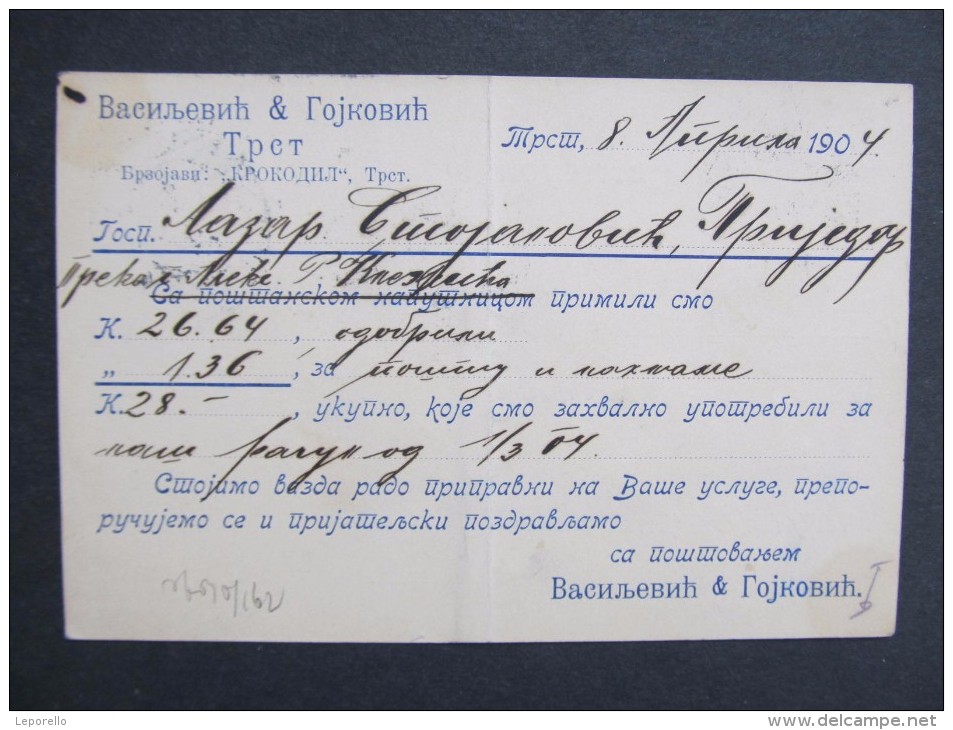 Васиљевић & Гојковић
Трст
Брзојави: „КРОКОДИЛ“, Трст.
Трст, 8. Априла 1904.
Госп. Лазар Стојановић, Приједор
преко Алекс. Р.
Са поштанском напутницом примили смо
К. 26.64, одобрили
„ 1.36, за пошту и
К. 28.–, укупно, које смо захвално употребили за
наш рачун од 1/3 04.
Стојимо вазда радо приправни на Ваше услуге, препо-
ручујемо се и пријатељски поздрављамо
са поштовањем
Васиљевић & Гојковић.
Leporello
delcampe.net